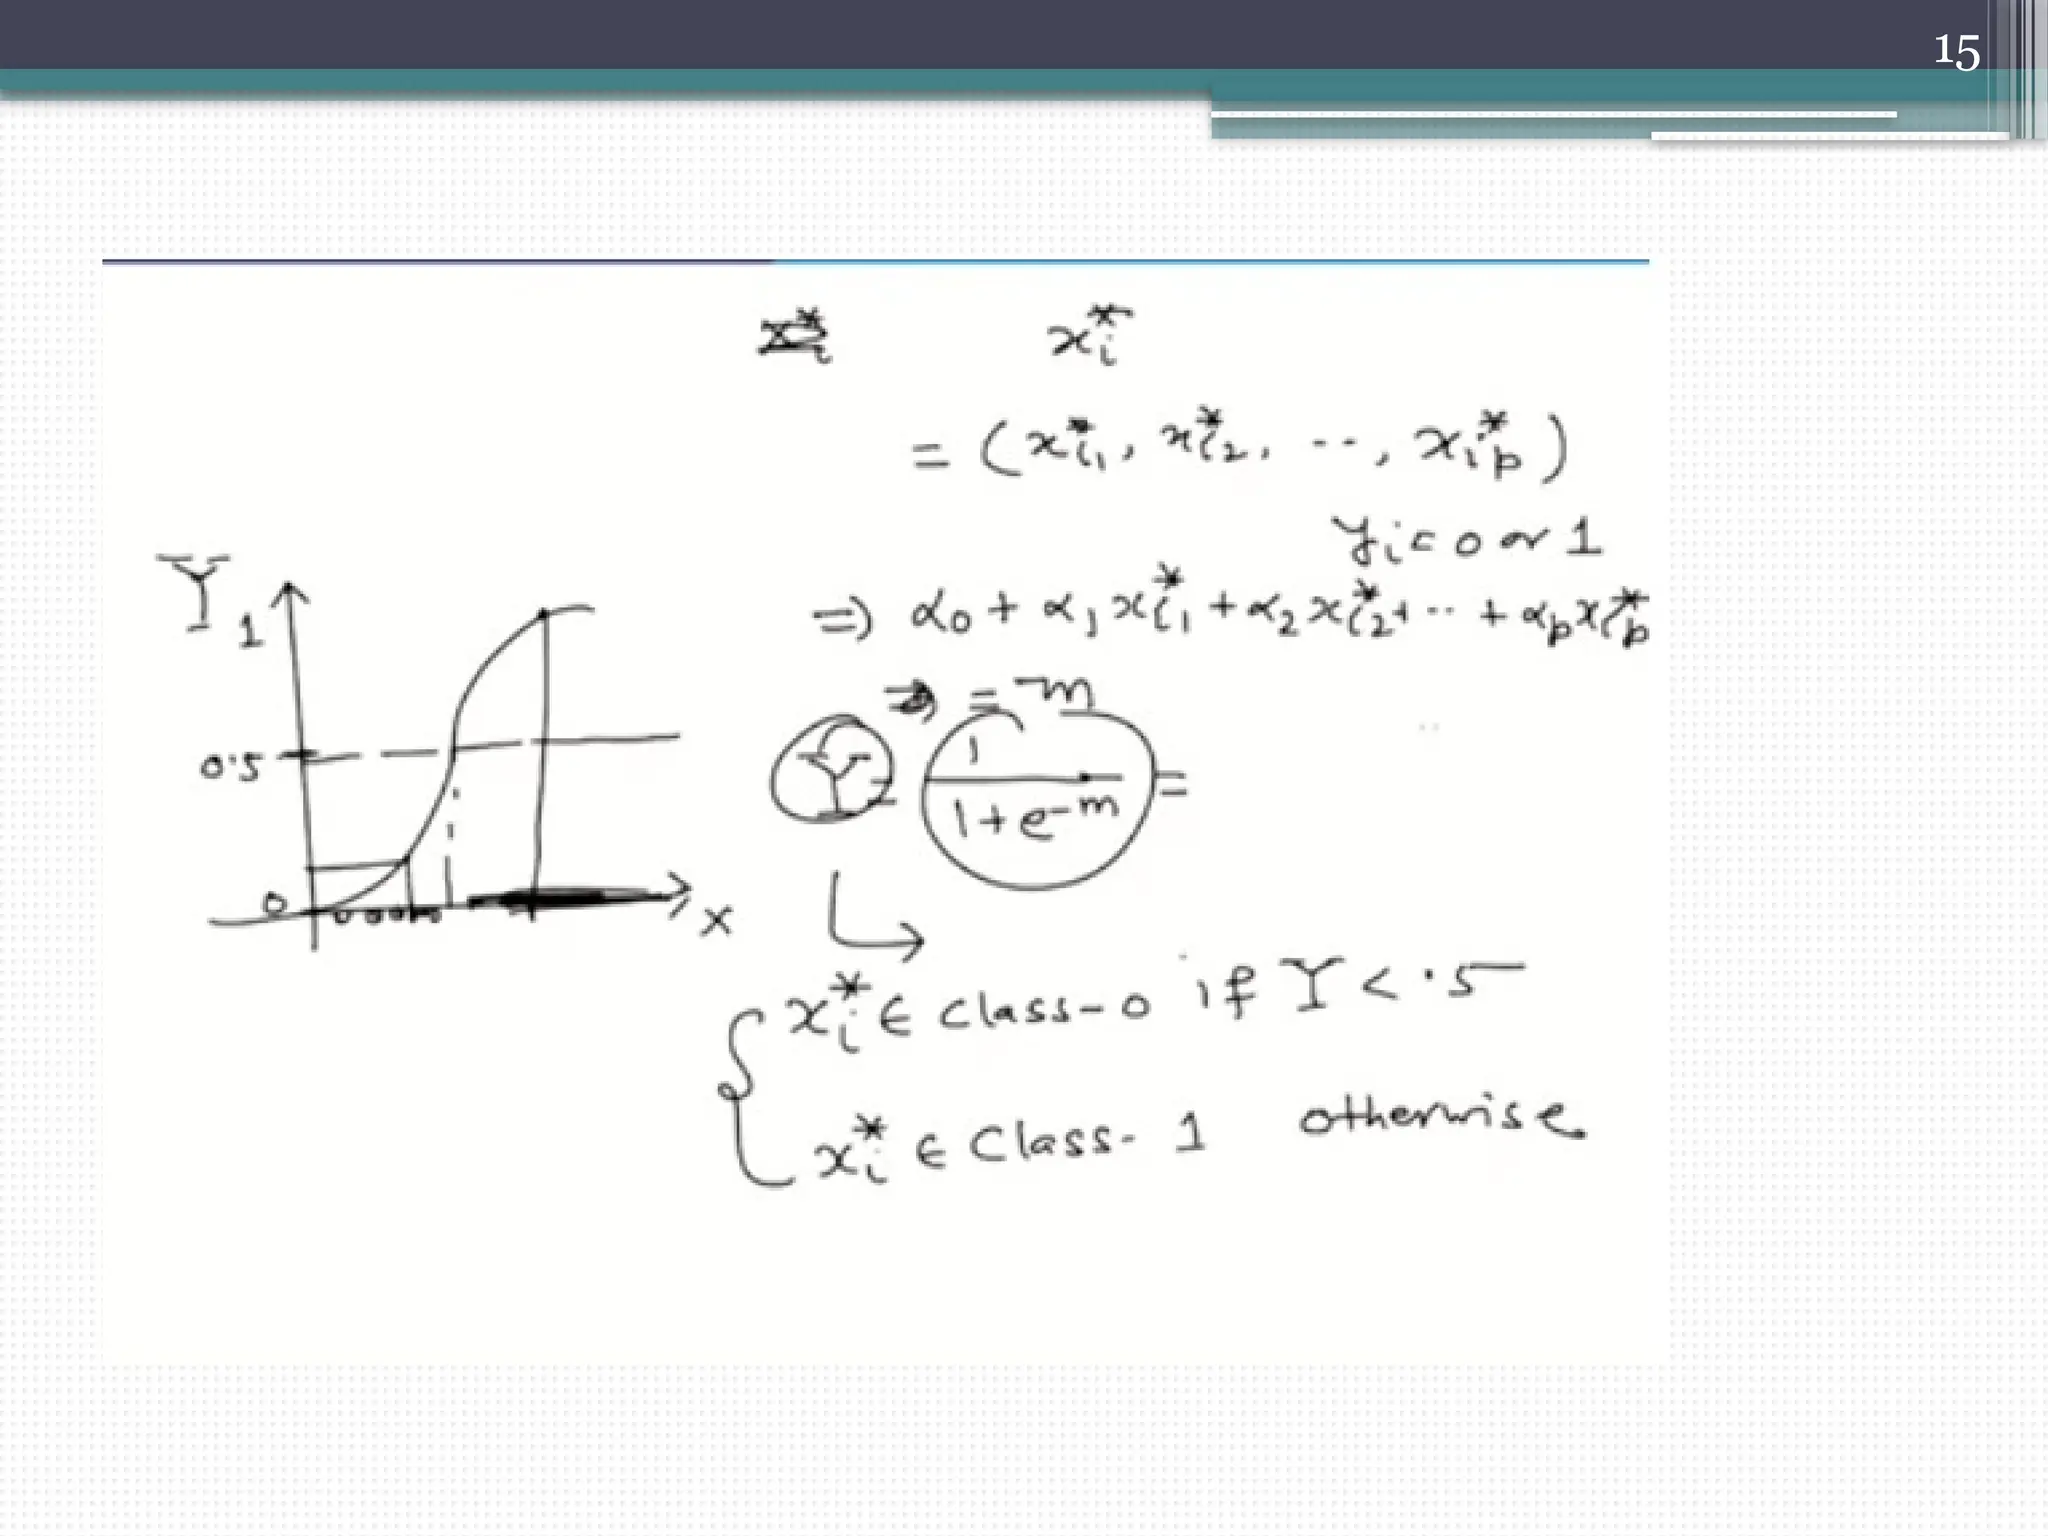 15
x_i^*
= (x_{i1}^*, x_{i2}^*, .., x_{ip}^*)
y_i = 0 or 1
⇒ α_0 + α_1 x_{i1}^* + α_2 x_{i2}^* + .. + α_p x_{ip}^*
= m
Y = 1 / (1 + e^{-m}) =
Y
1
0.5
0
X
x_i^* ∈ Class-0 if Y < .5
x_i^* ∈ Class-1 otherwise